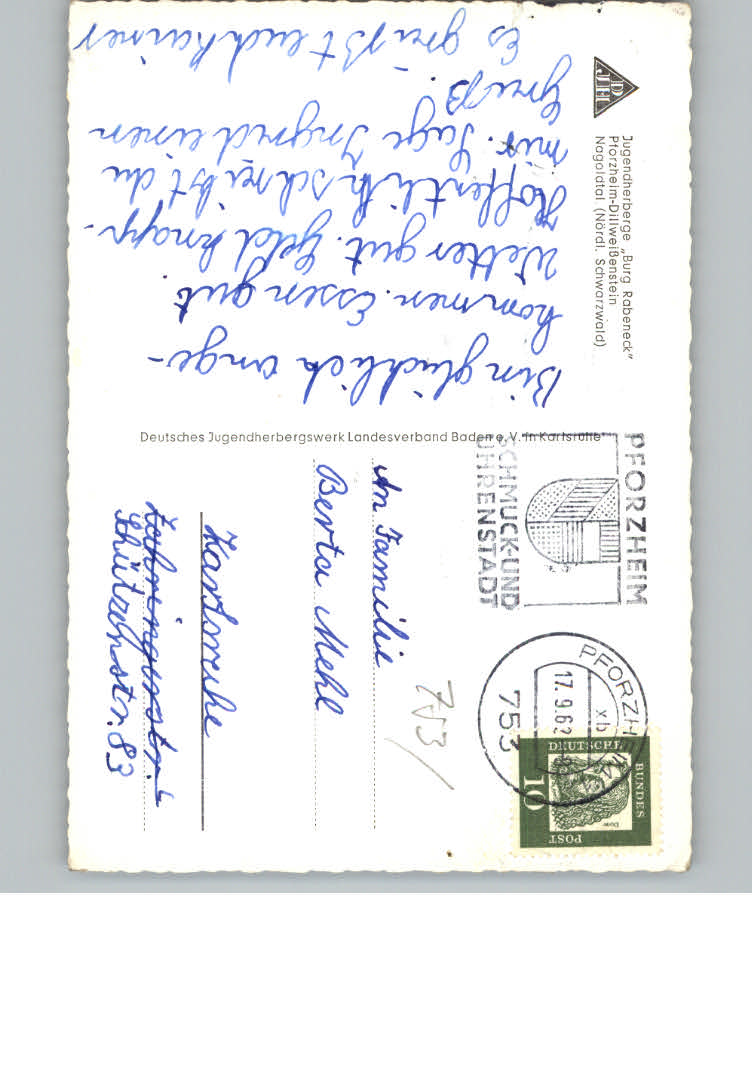 DJH
Jugendherberge „Burg Rabeneck"
Pforzheim-Dillweißenstein
Nagoldtal (Nördl. Schwarzwald)
Bin glücklich ange-
kommen. Essen gut.
Wetter gut. Geld knapp.
Hoffentlich schreibst du
mir. Sage Ingrid einen
Gruß.
Es grüßt euch Rainer
Deutsches Jugendherbergswerk Landesverband Baden e. V. in Karlsruhe
PFORZHEIM
SCHMUCK-UND
UHRENSTADT
PFORZHEIM
17.9.62
xb
753
DEUTSCHE
BUNDES
POST
10
Dürer
753/
An Familie
Berta Mehl
Karlsruhe
Zähringerstr. 4
Schützenstr. 83